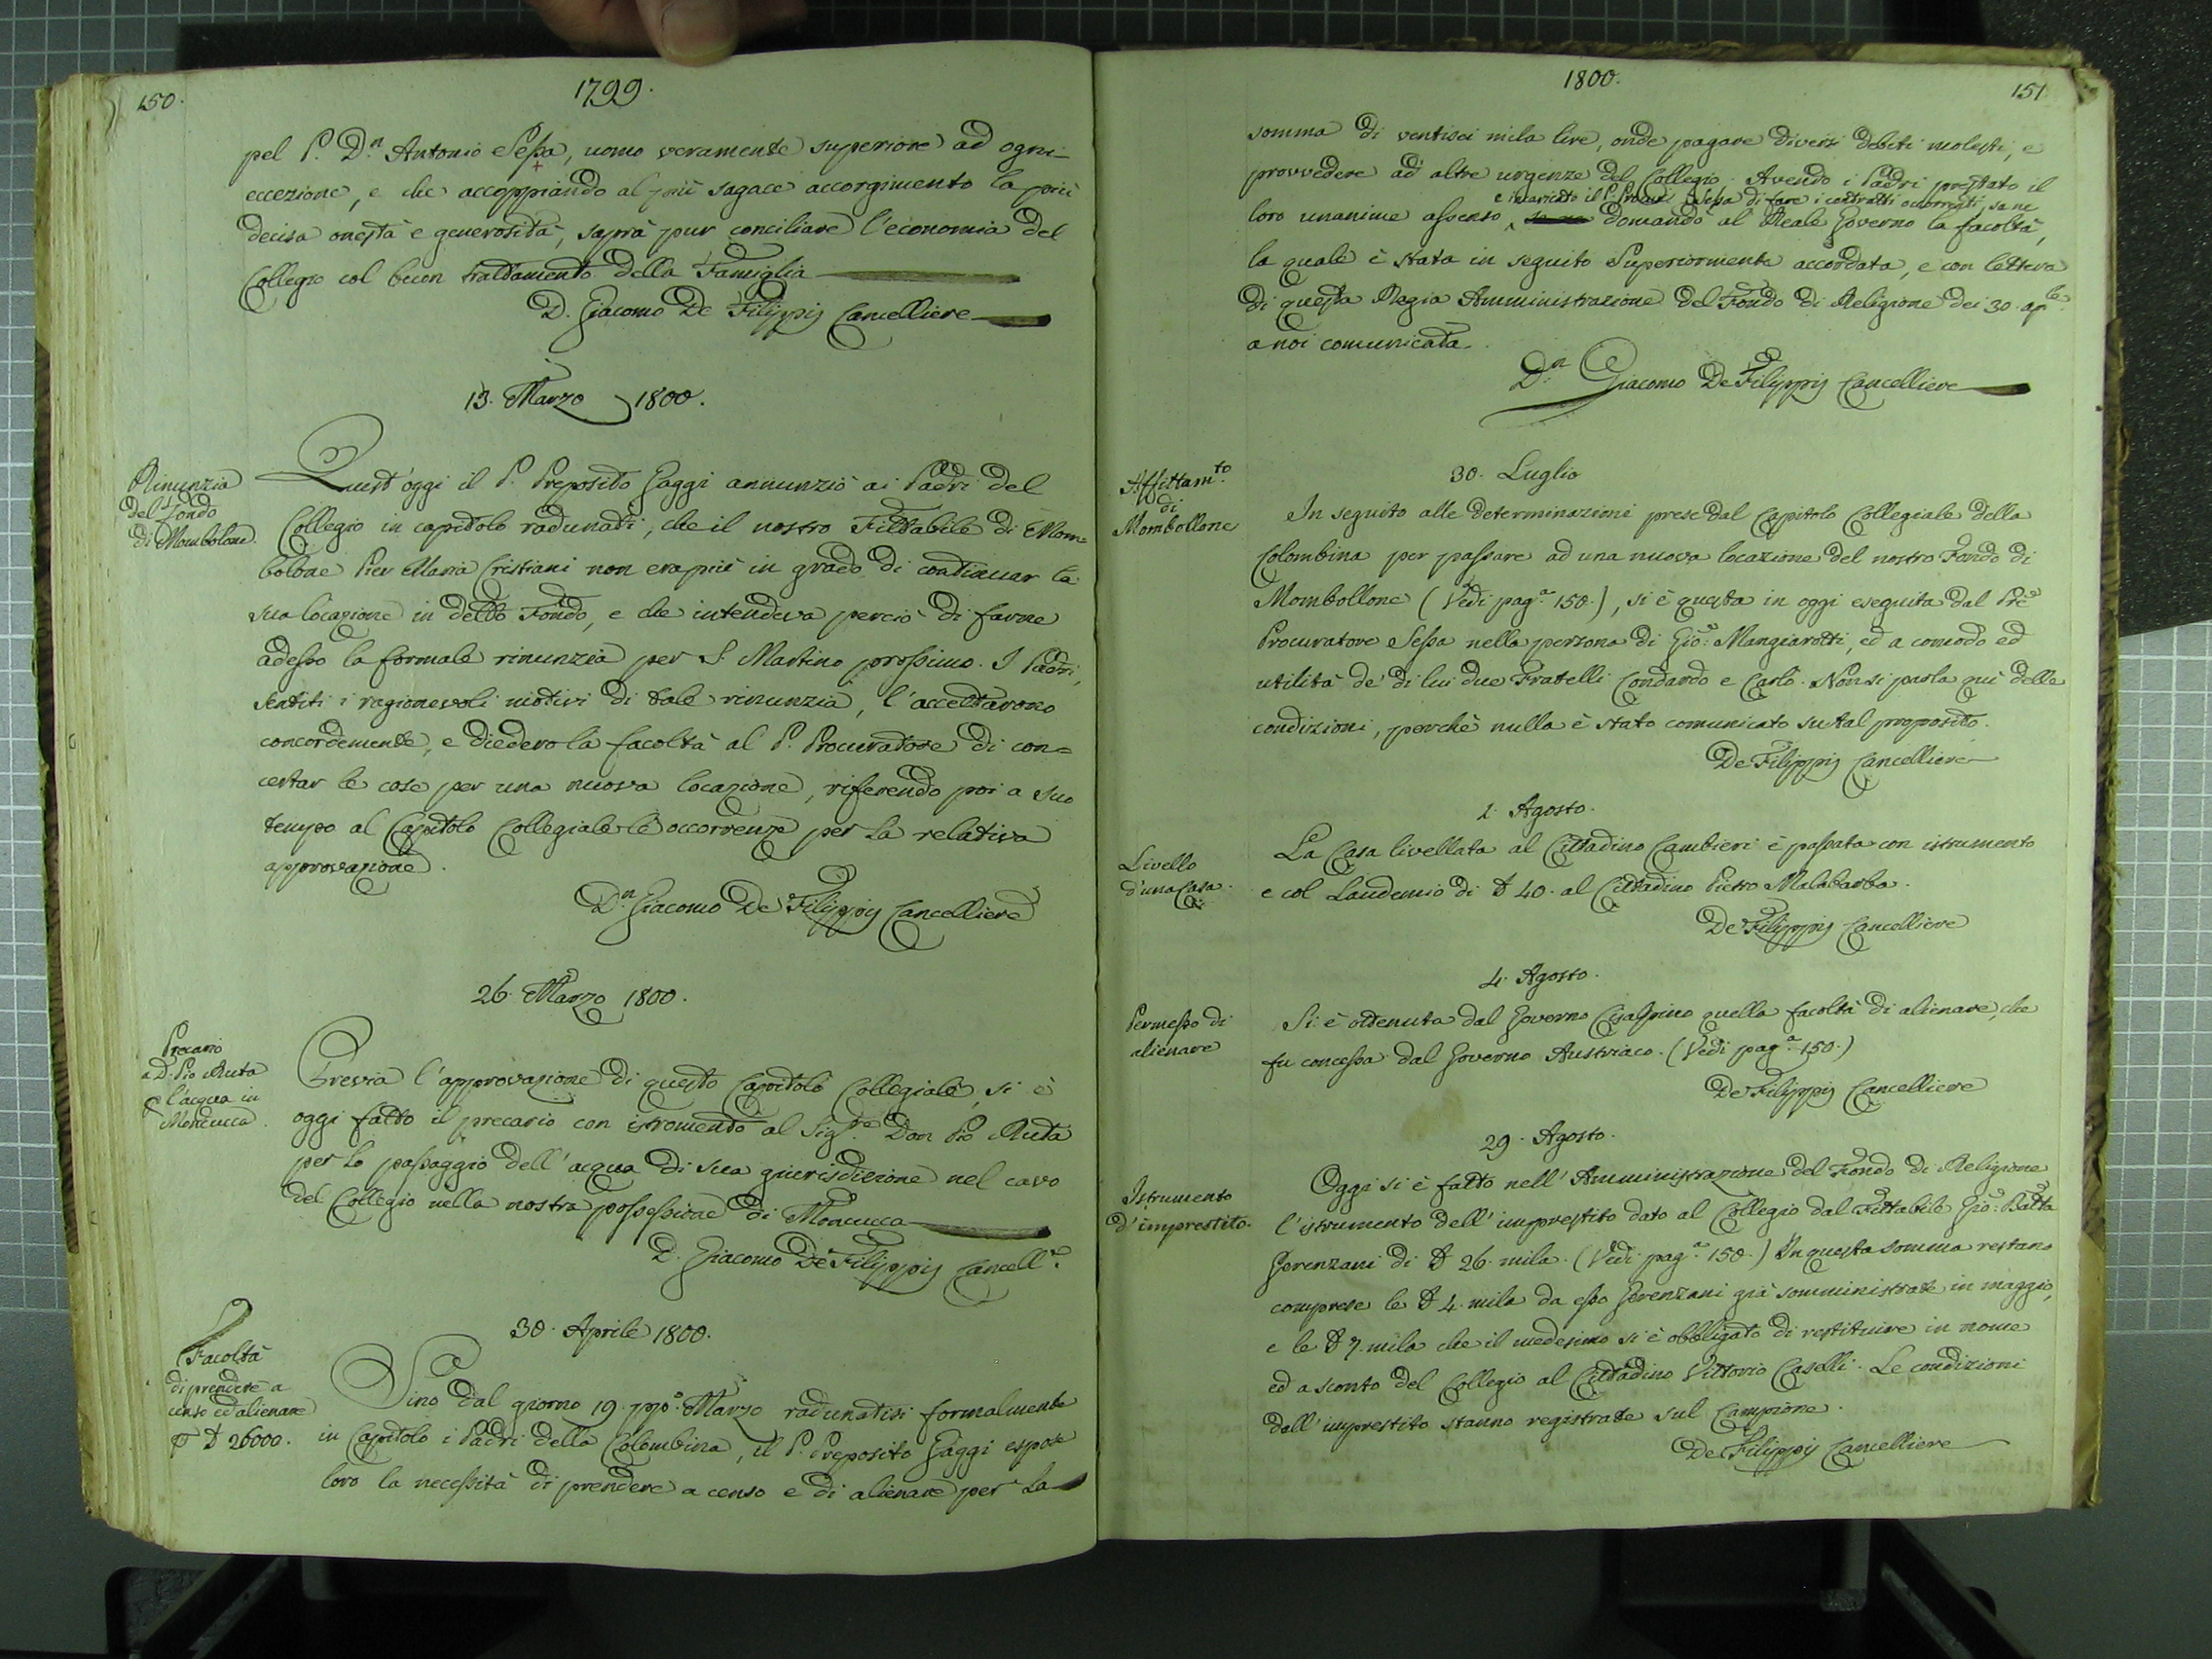 150.
1799.
pel P. D.n Antonio Sessa, uomo veramente superiore ad ogni
eccezione, e che accoppiando al più sagace accorgimento la più
decisa onestà e generosità, saprà pur conciliare l'economia del
Collegio col buon trattamento della Famiglia
D. Giacomo De Filippis Cancelliere
13. Marzo 1800.
Rinunzia
del fondo
di Mombolone.
Quest'oggi il P. Preposito Gaggi annunziò ai Padri del
Collegio in capitolo radunati, che il nostro Fittabile di Mom=
bolone Pier Maria Cristiani non era più in grado di continuar la
sua locazione in detto Fondo, e che intendeva perciò di farne
adesso la formale rinunzia per S. Martino prossimo. I Padri,
sentiti i ragionevoli motivi di tale rinunzia, l'accettarono
concordemente, e diedero la facoltà al P. Procuratore di con=
certar le cose per una nuova locazione, riferendo poi a suo
tempo al Capitolo Collegiale le occorrenze per la relativa
approvazione.
D.n Giacomo De Filippis Cancelliere
26. Marzo 1800.
Precario
a D. Pio Ruta
l'acqua in
Moncucca.
Previa l'approvazione di questo Capitolo Collegiale, si è
oggi fatto il precario con istromento al Sig.re Don Pio Ruta
per lo passaggio dell'acqua di sua giurisdizione nel cavo
del Collegio nella nostra possessione di Moncucca
D. Giacomo De Filippis Cancell.e
30. Aprile 1800.
Facoltà
di prendere a
censo ed alienare
26000.
Sino dal giorno 19. ppo. Marzo radunatisi formalmente
in Capitolo i Padri della Colombina, il P. Preposito Gaggi espose
loro la necessità di prendere a censo e di alienare per la
1800.
151
somma di ventisei mila lire, onde pagare diversi debiti molesti, e
provvedere ad altre urgenze del Collegio. Avendo i Padri prestato il
e incaricato il P. Procur. Sessa di fare i contratti occorrenti, se ne
loro unanime assenso, domandò al Reale Governo la facoltà,
la quale è stata in seguito Superiormente accordata, e con lettera
di questa Regia Amministrazione del Fondo di Religione dei 30. ap.le
a noi comunicata.
D.n Giacomo De Filippis Cancelliere
30. Luglio
Affittam.to
di
Mombollone
In seguito alle determinazioni prese dal Capitolo Collegiale della
Colombina per passare ad una nuova locazione del nostro Fondo di
Mombollone (Vedi pag.a 150.), si è questa in oggi eseguita dal Pre
Procuratore Sessa nella persona di Gio: Mangiarotti, ed a comodo ed
utilità de' di lui due Fratelli Condardo e Carlo. Non si parla quì delle
condizioni, perchè nulla è stato comunicato su tal proposito.
De Filippis Cancelliere
1. Agosto.
Livello
d'una Casa.
La Casa livellata al Cittadino Cambieri è passata con istrumento
e col Laudemio di 40. al Cittadino Pietro Malabarba.
De Filippis Cancelliere
4. Agosto.
Permesso di
alienare
Si è ottenuta dal Governo Cisalpino quella facoltà di alienare, che
fu concessa dal Governo Austriaco. (Vedi pag.a 150.)
De Filippis Cancelliere
29. Agosto.
Istrumento
d'imprestito.
Oggi si è fatto nell'Amministrazione del Fondo di Religione
l'istrumento dell'imprestito dato al Collegio dal Fittabile Gio: Batta
Gerenzani di 26. mila. (Vedi pag.a 150.) In questa somma restano
comprese le 4. mila da esso Gerenzani già somministrate in maggio,
e le 7. mila che il medesimo si è obbligato di restituire in nome
ed a sconto del Collegio al Cittadino Vittorio Caselli. Le condizioni
dell'imprestito stanno registrate sul Campione.
De Filippis Cancelliere